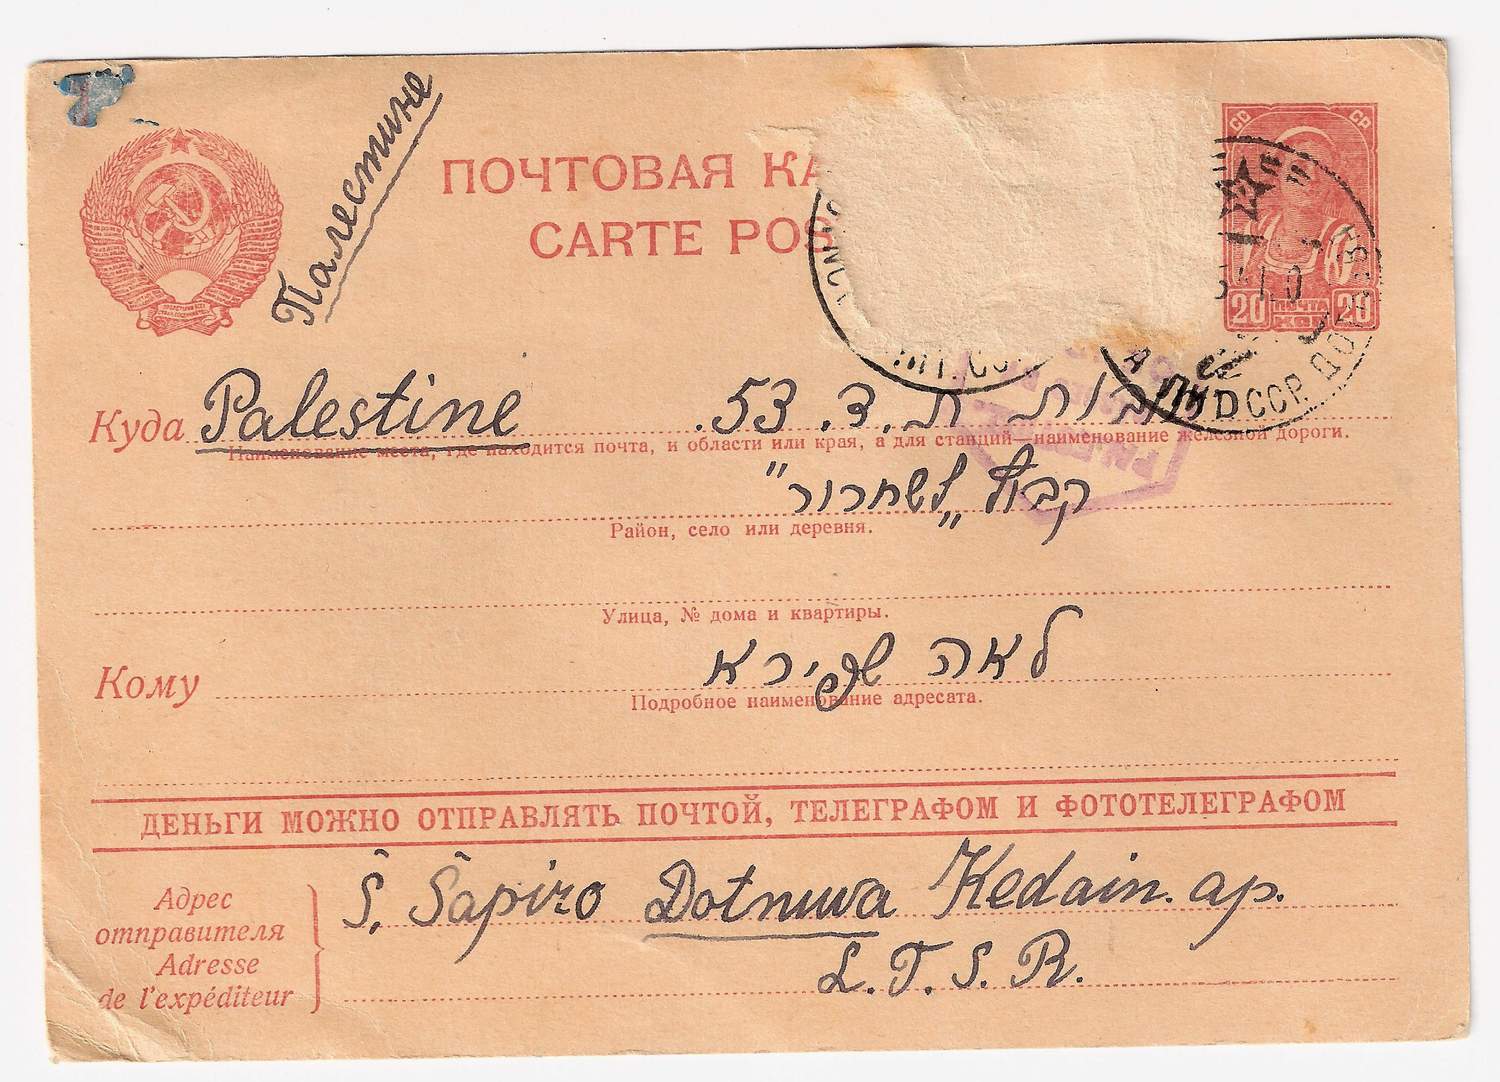 Палестине
ПОЧТОВАЯ КА
CARTE POS
СС СР
20 ПОЧТА 20
КОП
Куда Palestine רחובות ת.ד. 53.
Наименование места, где находится почта, и области или края, а для станций—наименование железной дороги.
קבוצ „לשחרור"
Район, село или деревня.
Улица, № дома и квартиры.
Кому לאה שפירא
Подробное наименование адресата.
ДЕНЬГИ МОЖНО ОТПРАВЛЯТЬ ПОЧТОЙ, ТЕЛЕГРАФОМ И ФОТОТЕЛЕГРАФОМ
Адрес отправителя
Adresse de l'expéditeur
Ŝ. Ŝapiro Dotnuva Kedain. ap.
L.T.S.R.